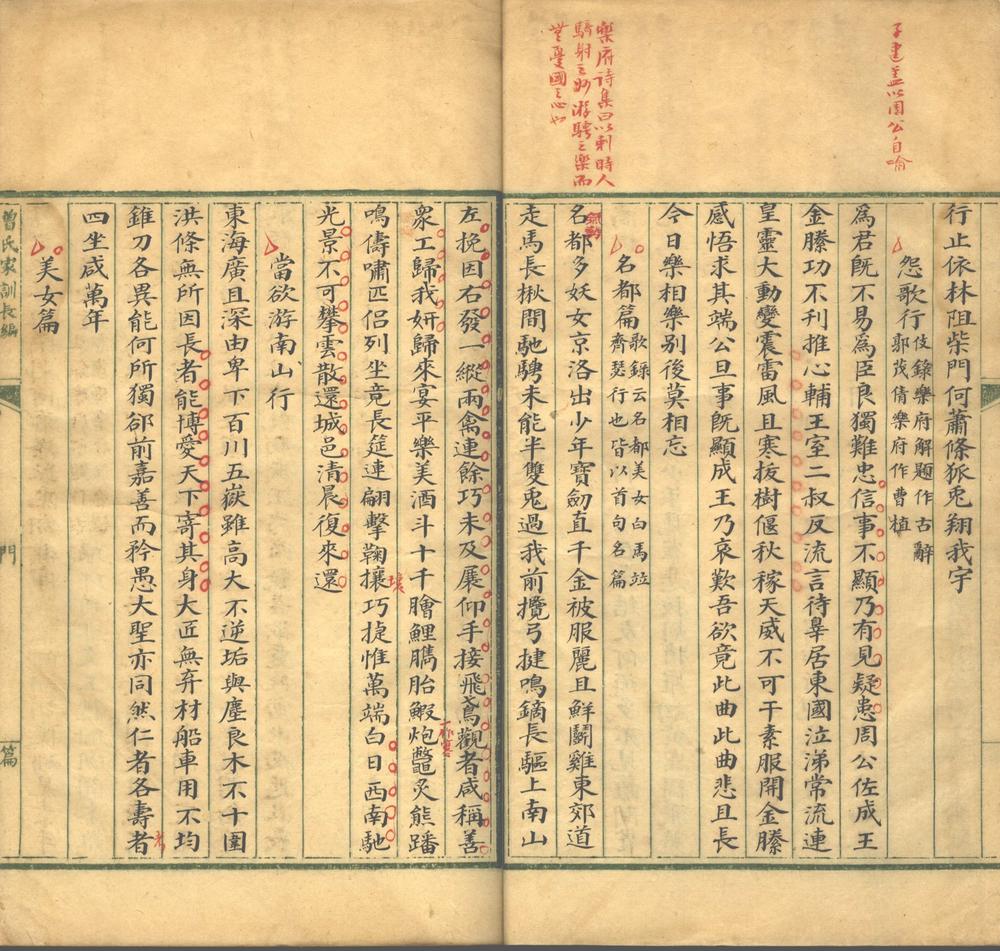 子建蓋以周公自喻
樂府詩集曰以刺時人
騎射之妙游騁之樂而
無憂國之心也
行止依林阻柴門何蕭條狐兎翔我宇
怨歌行
伎錄樂府解題作古辭
郭茂倩樂府作曹植
為君旣不易為臣良獨難忠信事不顯乃有見疑患周公佐成王
金縢功不刋推心輔王室二叔反流言待辠居東國泣涕常流連
皇靈大動變震雷風且寒拔樹偃秋稼天威不可干素服開金縢
感悟求其端公旦事旣顯成王乃哀歎吾欲竟此曲此曲悲且長
今日樂相樂別後莫相忘
名都篇
歌錄云名都美女白馬竝
齊瑟行也皆以首句名篇
名都多妖女京洛出少年寶劒直千金被服麗且鮮鬬雞東郊道
走馬長楸間馳騁未能半雙兎過我前攬弓捷鳴鏑長驅上南山
左挽因右發一縱兩禽連餘巧未及展仰手接飛鳶觀者咸稱善
衆工歸我妍歸來宴平樂美酒斗十千膾鯉臇胎鰕炮鼈炙熊蹯
鳴儔嘯匹侶列坐竟長筵連翩擊鞠攘巧捷惟萬端白日西南馳
壤
光景不可攀雲散還城邑清晨復來還
當欲游南山行
東海廣且深由卑下百川五嶽雖高大不逆垢與塵良木不十圍
洪條無所因長者能博愛天下寄其身大匠無弃材船車用不均
錐刀各異能何所獨郤前嘉善而矜愚大聖亦同然仁者各壽考
四坐咸萬年
美女篇
曾氏家訓長編
門
篇